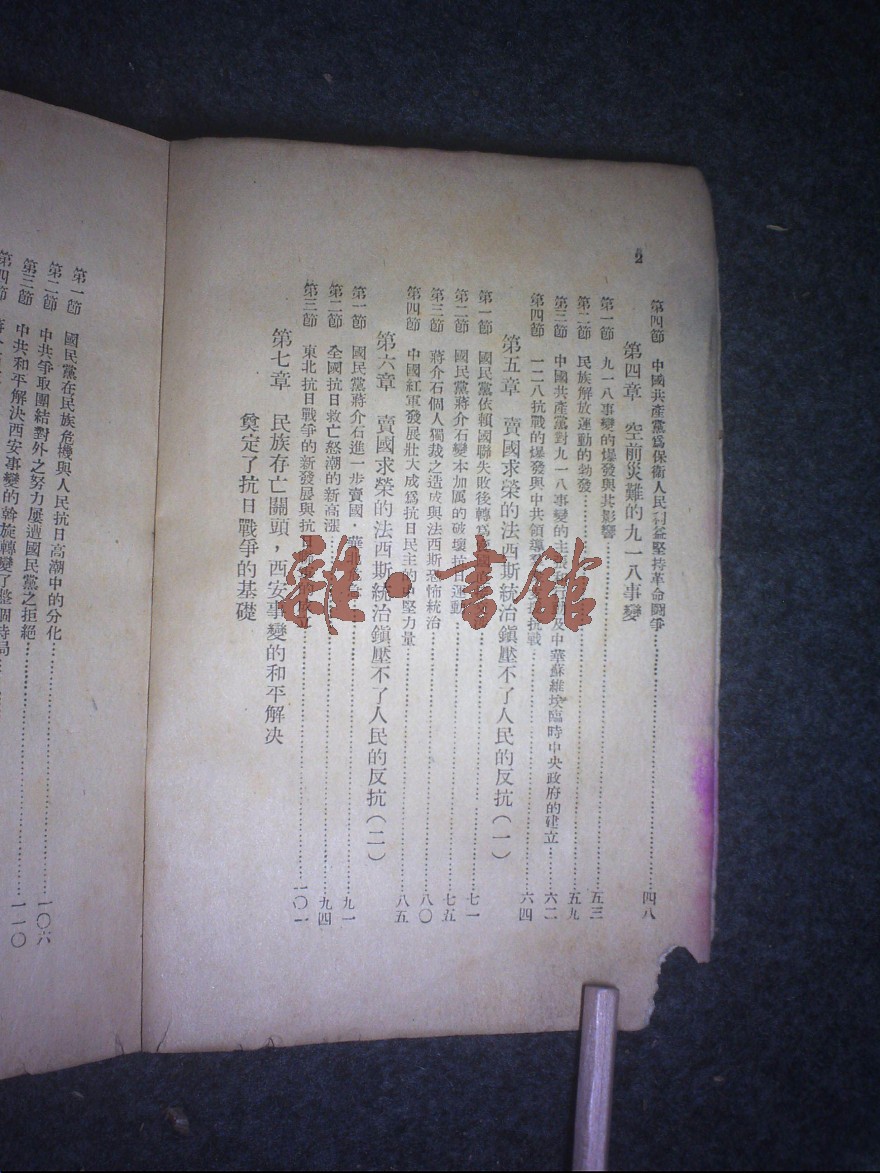 2
第四節 中國共產黨爲保衛人民利益堅持革命鬪爭⋯⋯四八
第四章 空前災難的九一八事變
第一節 九一八事變的爆發與其影響⋯⋯五三
第二節 民族解放運動的勃發⋯⋯五九
第三節 中國共產黨對九一八事變的主張 及中華蘇維埃臨時中央政府的建立⋯⋯六二
第四節 一二八抗戰的爆發與中共領導 抗戰⋯⋯六四
第五章 賣國求榮的法西斯統治鎭壓不了人民的反抗(一)
第一節 國民黨依賴國聯失敗後轉爲⋯⋯七一
第二節 國民黨蔣介石變本加厲的破壞抗日運動⋯⋯七五
第三節 蔣介石個人獨裁之造成與法西斯恐怖統治⋯⋯八〇
第四節 中國紅軍發展壯大成爲抗日民主的中堅力量⋯⋯八五
第六章 賣國求榮的法西斯統治鎭壓不了人民的反抗(二)
第一節 國民黨蔣介石進一步賣國・華北⋯⋯九一
第二節 全國抗日救亡怒潮的新高漲⋯⋯九四
第三節 東北抗日戰爭的新發展與抗日⋯⋯一〇一
第七章 民族存亡關頭,西安事變的和平解决
奠定了抗日戰爭的基礎
第一節 國民黨在民族危機與人民抗日高潮中的分化
第二節 中共爭取團結對外之努力屢遭國民黨之拒絕⋯⋯一〇六
第三節 中共和平解決西安事變的斡旋轉變了整個時局⋯⋯一一〇
第四節
雜·書館